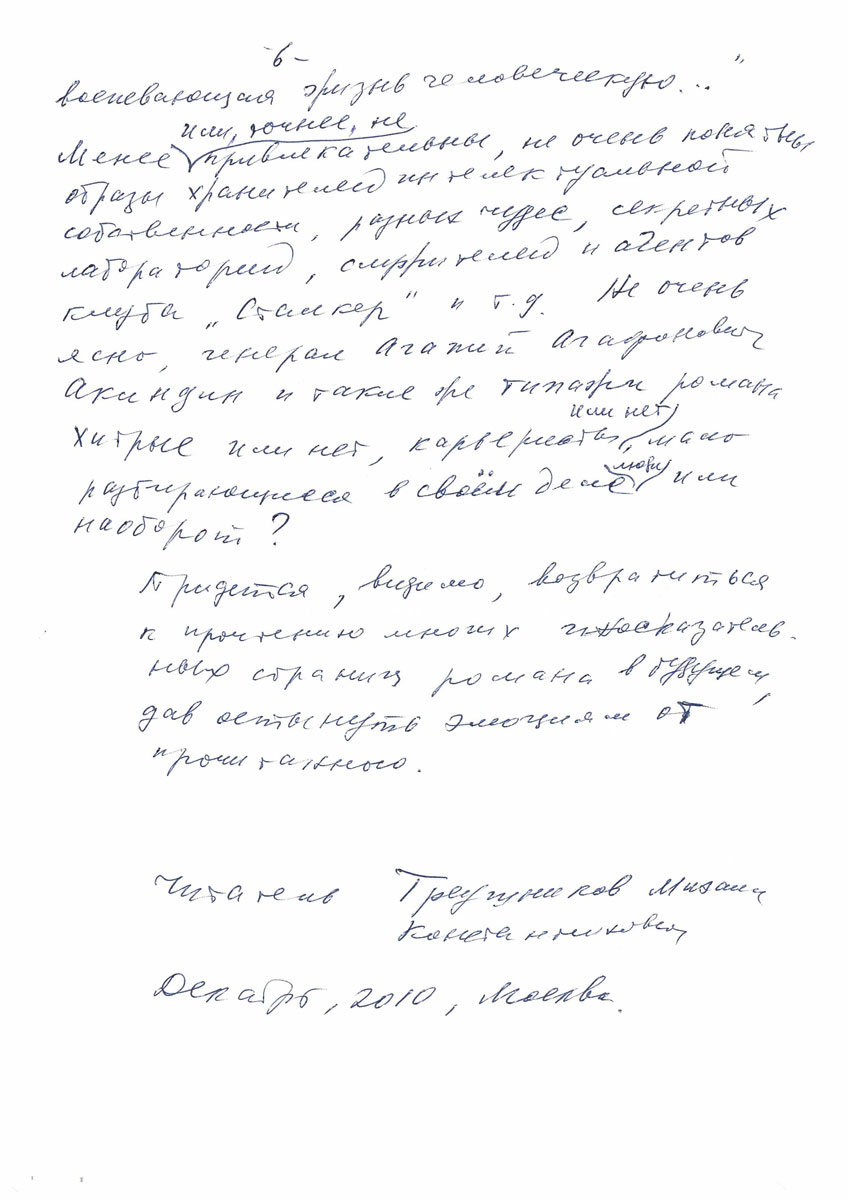 -6-
воспевающая жизнь человеческую..."
или, точнее, не
Менее привлекательны, не очень понятны
образы хранителей интелектуальной
собственности, разных чудес, секретных
лабораторий, смотрителей и агентов
клуба „Сталкер" и т.д. Не очень
ясно, генерал Агапий Агафонович
Акиндин и такие же типажи романа
или нет
хитрые или нет, карьеристы, мало
люди
разбирающиеся в своём деле или
наоборот?
Придется, видимо, возвратиться
к прочтению многих иносказатель-
ных страниц романа в будущем,
дав остынуть эмоциям от
прочитанного.
Читатель Михаил
Константинович
Декабрь, 2010, Москва.